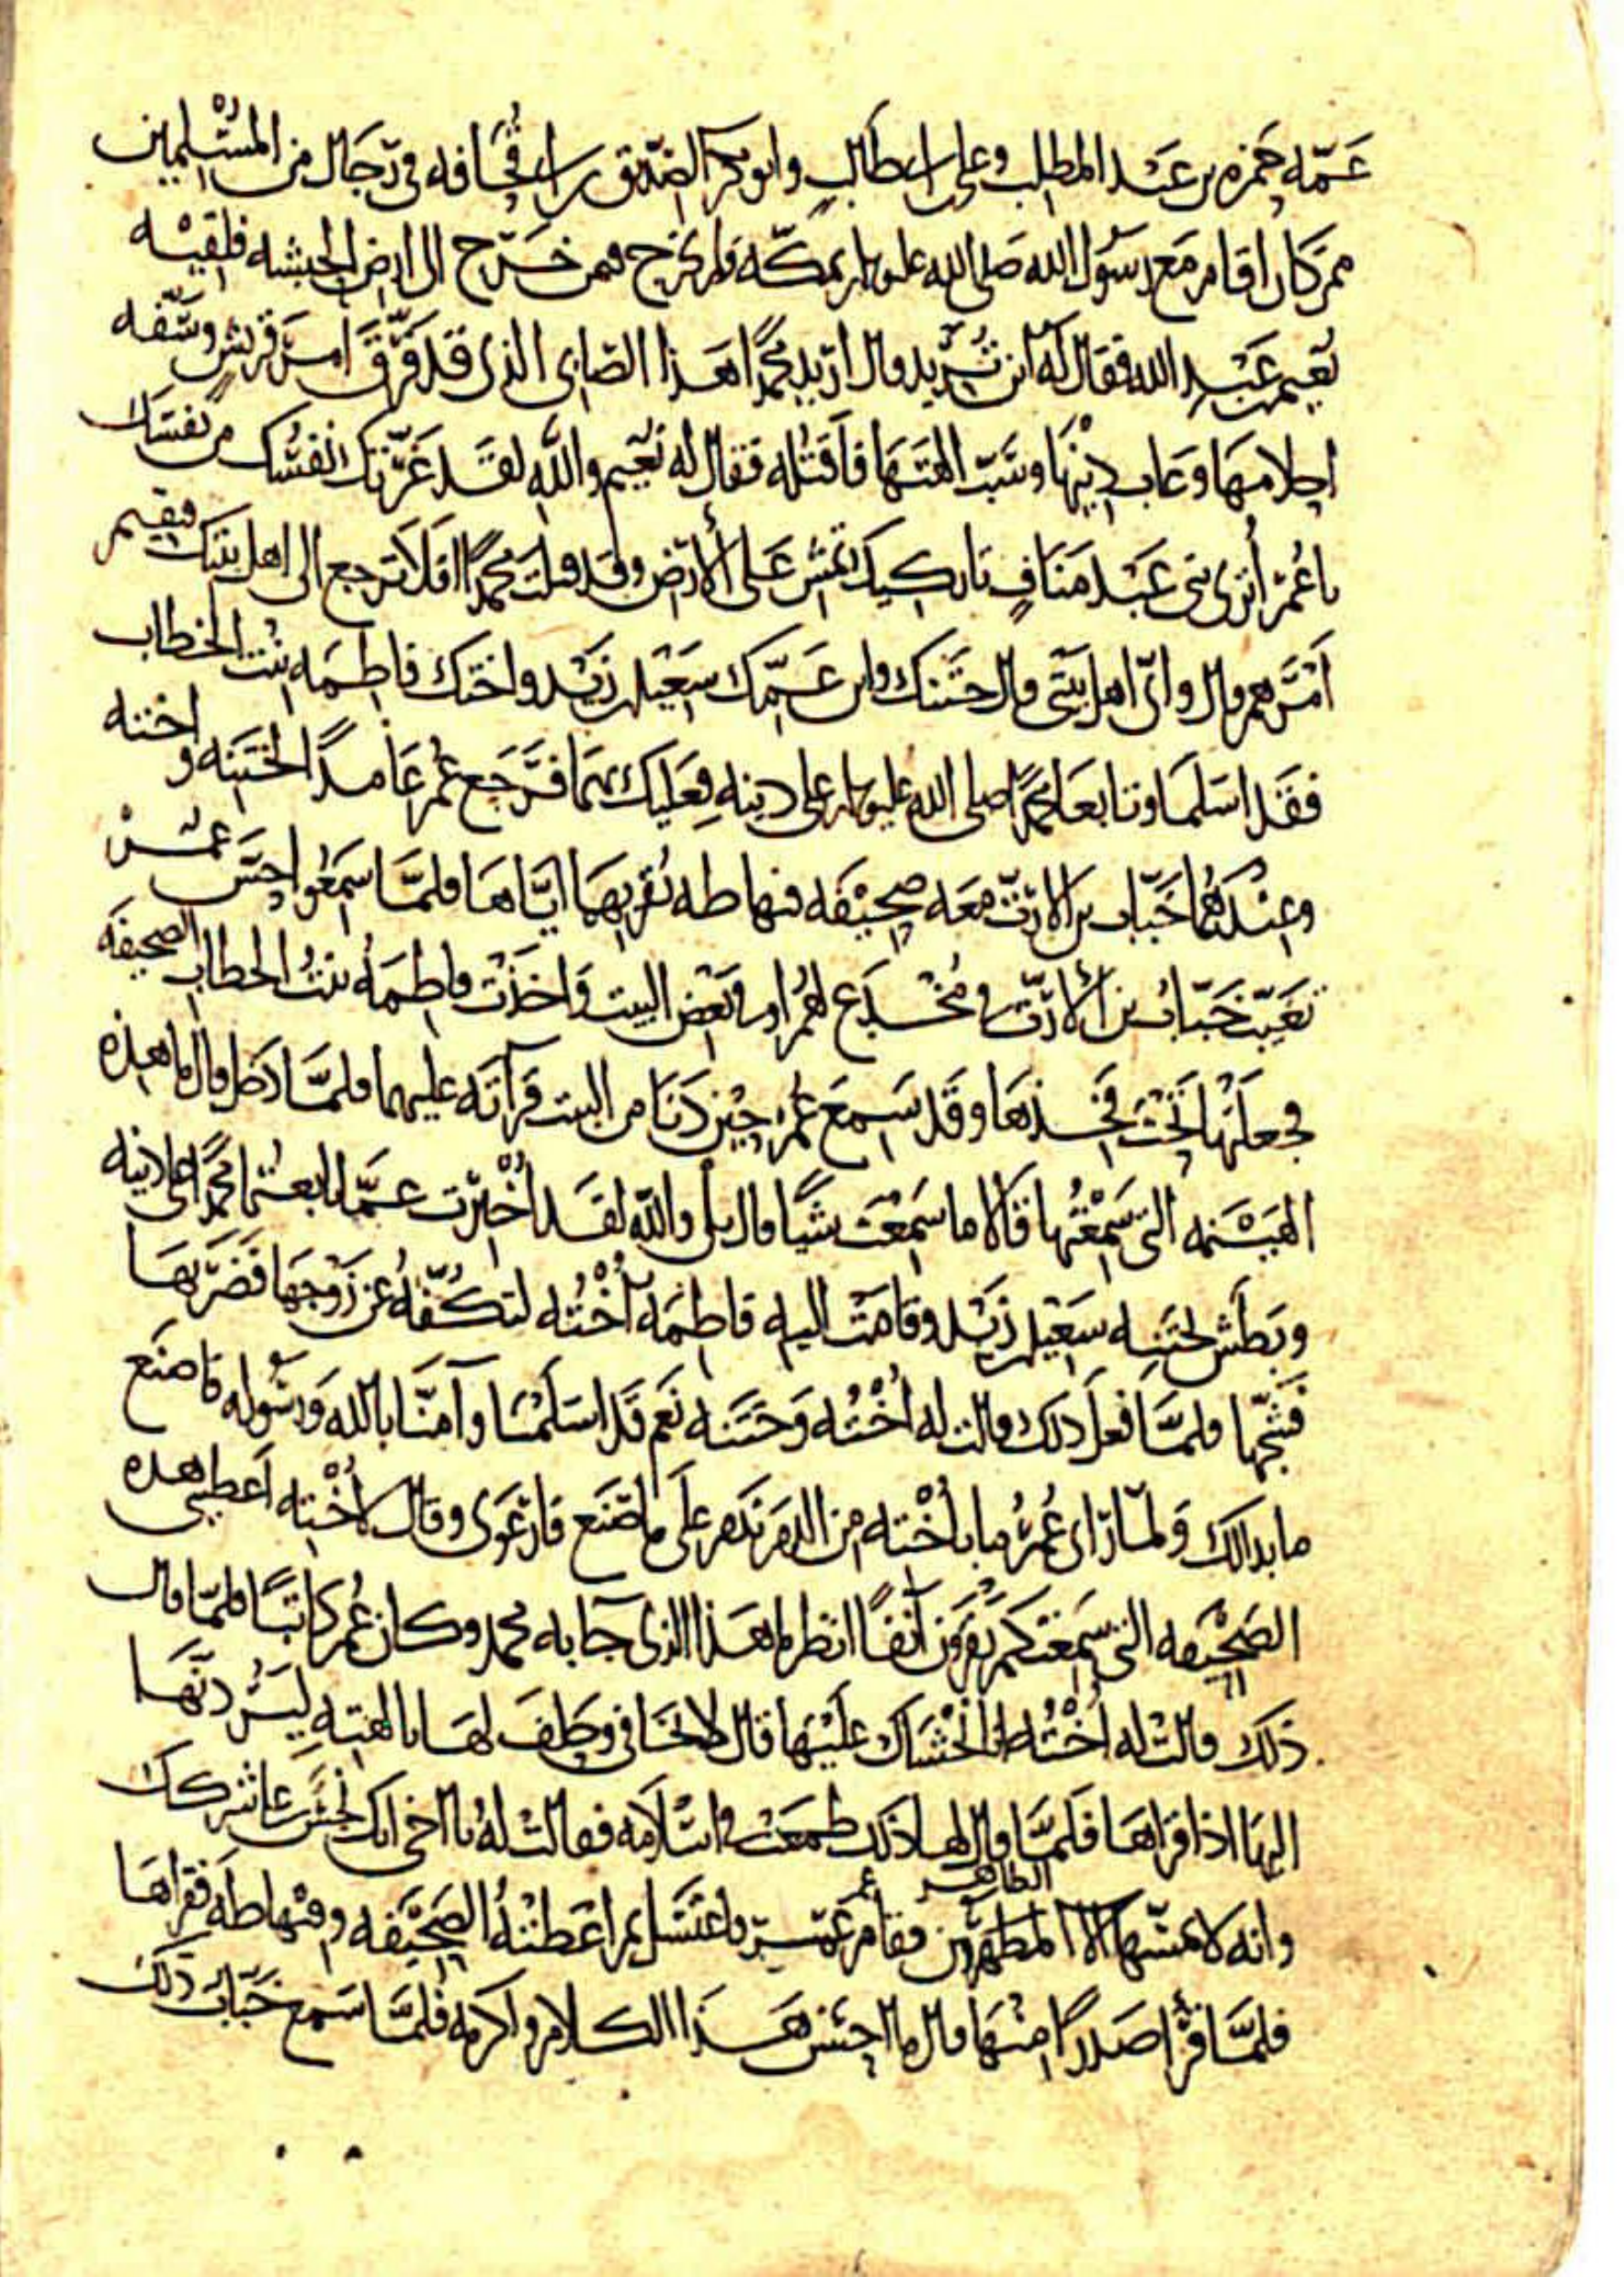 عمّه حمزه بن عبد المطلب وعلى ابن ابى طالب وابو بكر الصديق بن ابى قحافه فى رجال من المسلمين
ممن كان اقام مع رسول الله صلى الله عليه بمكّه ولم يخرج فيمن خرج الى ارض الحبشه فلقيه
نعيم بن عبد الله فقال له اين تريد قال اريد محمدًا هذا الصابى الذى قد فرّق امر قريش وسفّه
احلامها وعاب دينها وسبّ الهتها فاقتله فقال له نعيم والله لقد غرّتك نفسك من نفسك
يا عمر أترى بنى عبد مناف تاركيك تمشى على الأرض وقد قتلت محمدًا افلا ترجع الى اهل بيتك فتقيم
امرهم قال واىّ اهل بيتى قال ختنك وابن عمّك سعيد بن زيد واختك فاطمه بنت الخطاب
فقد اسلما وتابعا محمدًا صلى الله عليه على دينه فعليك بهما فرجع عمر عامدًا لختنه واخته
وعندهما خبّاب بن الارتّ معه صحيفه فيها طه يقريهما ايّاها فلمّا سمعوا حسّ عمر
تغيّب خبّاب بن الأرتّ فى مخدع لهم او فى بعض البيت واخذت فاطمه بنت الخطاب الصحيفه
فجعلتها تحت فخذها وقد سمع عمر حين دنا من البيت قرآته عليهما فلمّا دخل قال ما هذه
الهينمه التى سمعتها قالا ما سمعت شيًا قال بلى والله لقد أخبرت عمّا تابعتما محمدًا على دينه
وبطش بختنه سعيد بن زيد وقامت اليه فاطمه أخته لتكفّه عن زوجها فضربها
فشجّها فلمّا فعل ذلك قالت له أخته وختنه نعم قد اسلمنا وآمنّا بالله ورسوله فاصنع
ما بدالك ولمّا راى عمر ما بأخته من الدم ندم على ما صنع فارعوى وقال لأخته اعطينى هذه
الصحيفه التى سمعتكم تقرون آنفًا انظر ما هذا الذى جا به محمد وكان عمر كاتبًا فلمّا قال
ذلك قالت له أخته انا نخشاك عليها قال لا تخافى وحلف لها بالهته ليردنّها
اليها اذا قراها فلمّا قال لها ذلك طمعت فى اسلامه فقالت له يا اخى انك نجس على شركك
وانه لا يمسّها الا المطهرون الطاهر فقام عمر فاغتسل ثم اعطته الصحيفه وفيها طه فقراها
فلمّا قرأ صدرًا منها قال ما احسن هذا الكلام واكرمه فلمّا سمع خبّاب ذلك